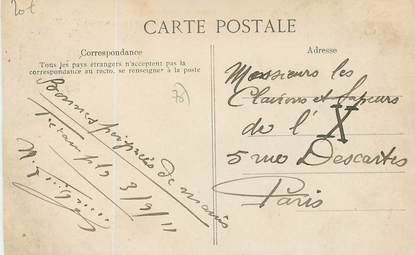 20t
CARTE POSTALE
Correspondance
Tous les pays étrangers n'acceptent pas la
correspondance au recto, se renseigner à la poste
Bonnes
de
3/9/11
78
Adresse
Messieurs les
Clairons et Sapeurs
de l'X
5 rue Descartes
Paris